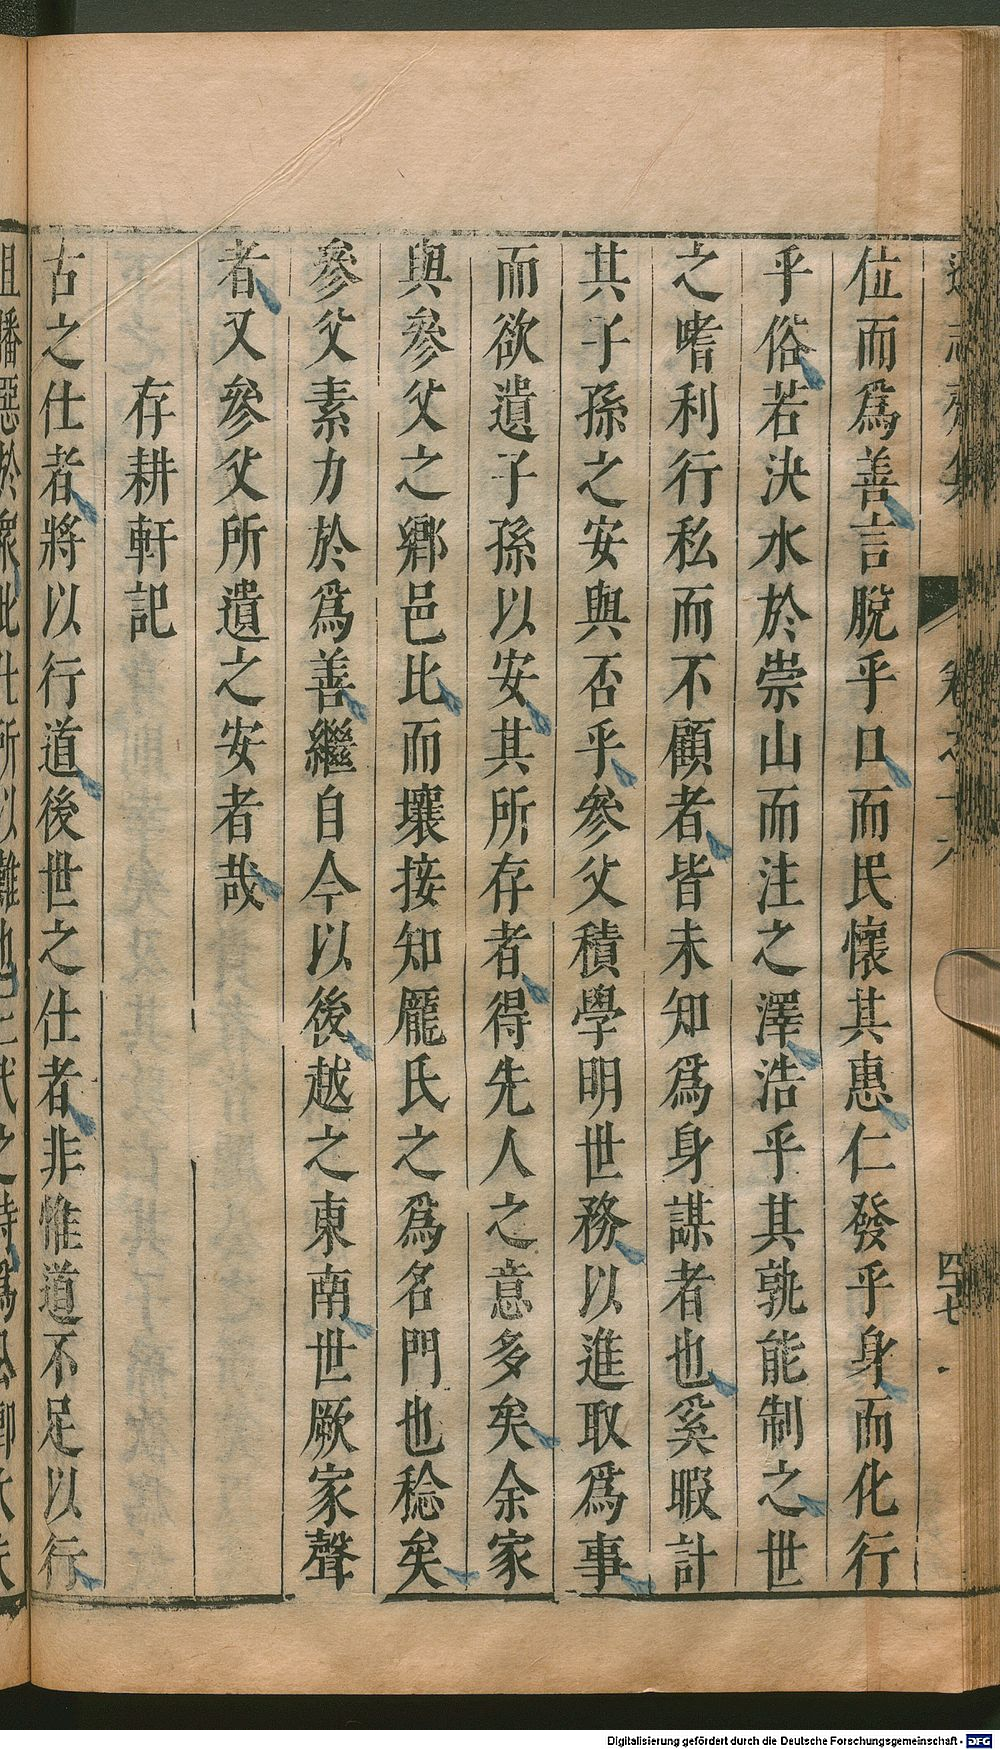 位而爲善言脫乎口而民懷其惠仁發乎身而化行
乎俗若決水於崇山而注之澤浩乎其孰能制之世
之嗜利行私而不顧者皆未知爲身謀者也奚暇計
其子孫之安與否乎參父積學明世務以進取爲事
而欲遺子孫以安其所存者得先人之意多矣余家
與參父之鄉邑比而壤接知龎氏之爲名門也稔矣
參父素力於爲善繼自今以後越之東南世厥家聲
者又參父所遺之安者哉
存耕軒記
古之仕者將以行道後世之仕者非惟道不足以行
Digitalisierung gefördert durch die Deutsche Forschungsgemeinschaft - DFG